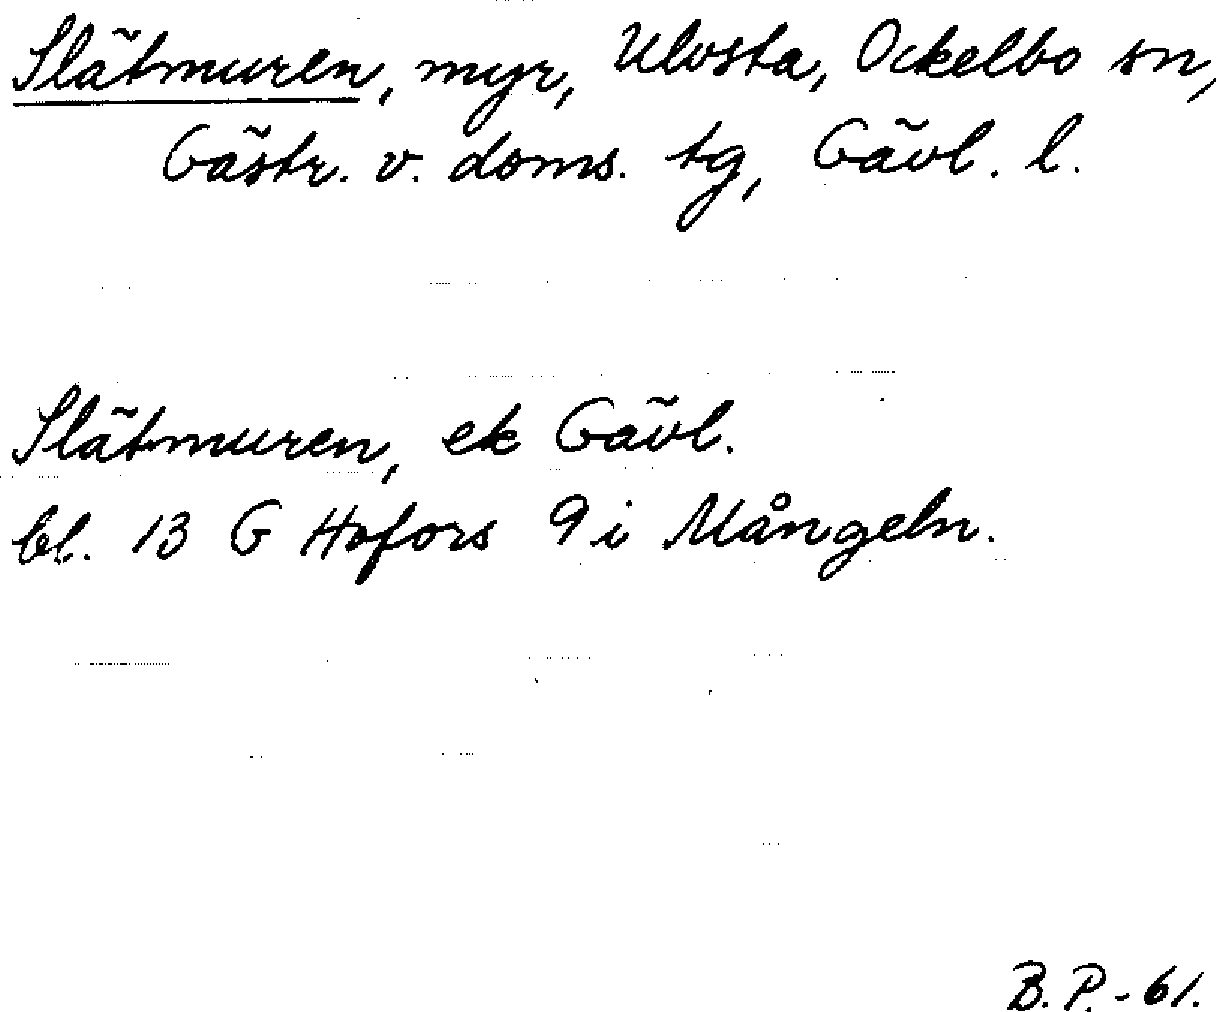 Slätmuren, myr, Ulvsta, Ockelbo sn,
Gästr. v. doms. tg, Gävl. l.
Slätmuren, ek Gävl.
bl. 13 G Hofors 9 i Mångeln.
B. P. - 61.